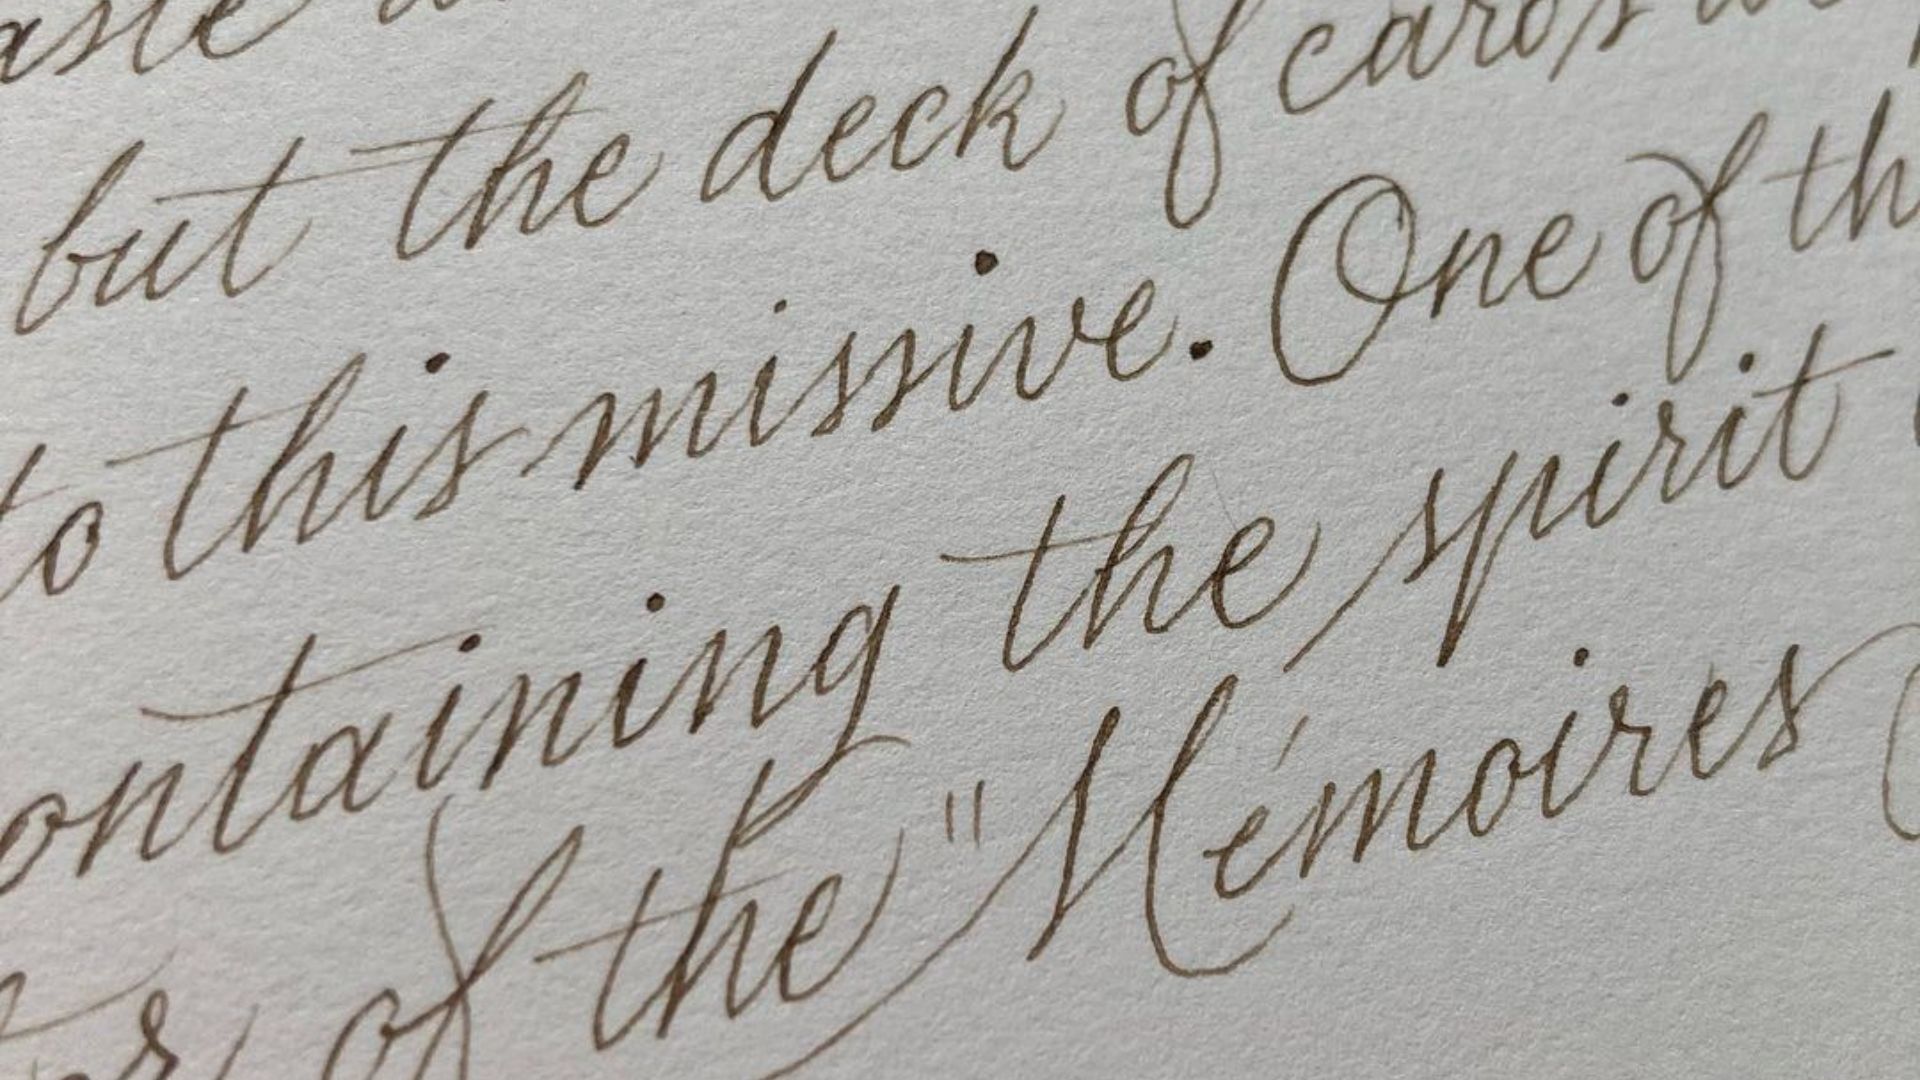 but the deck of cards
to this missive. One of th
ontaining the spirit
of the "Mémoires